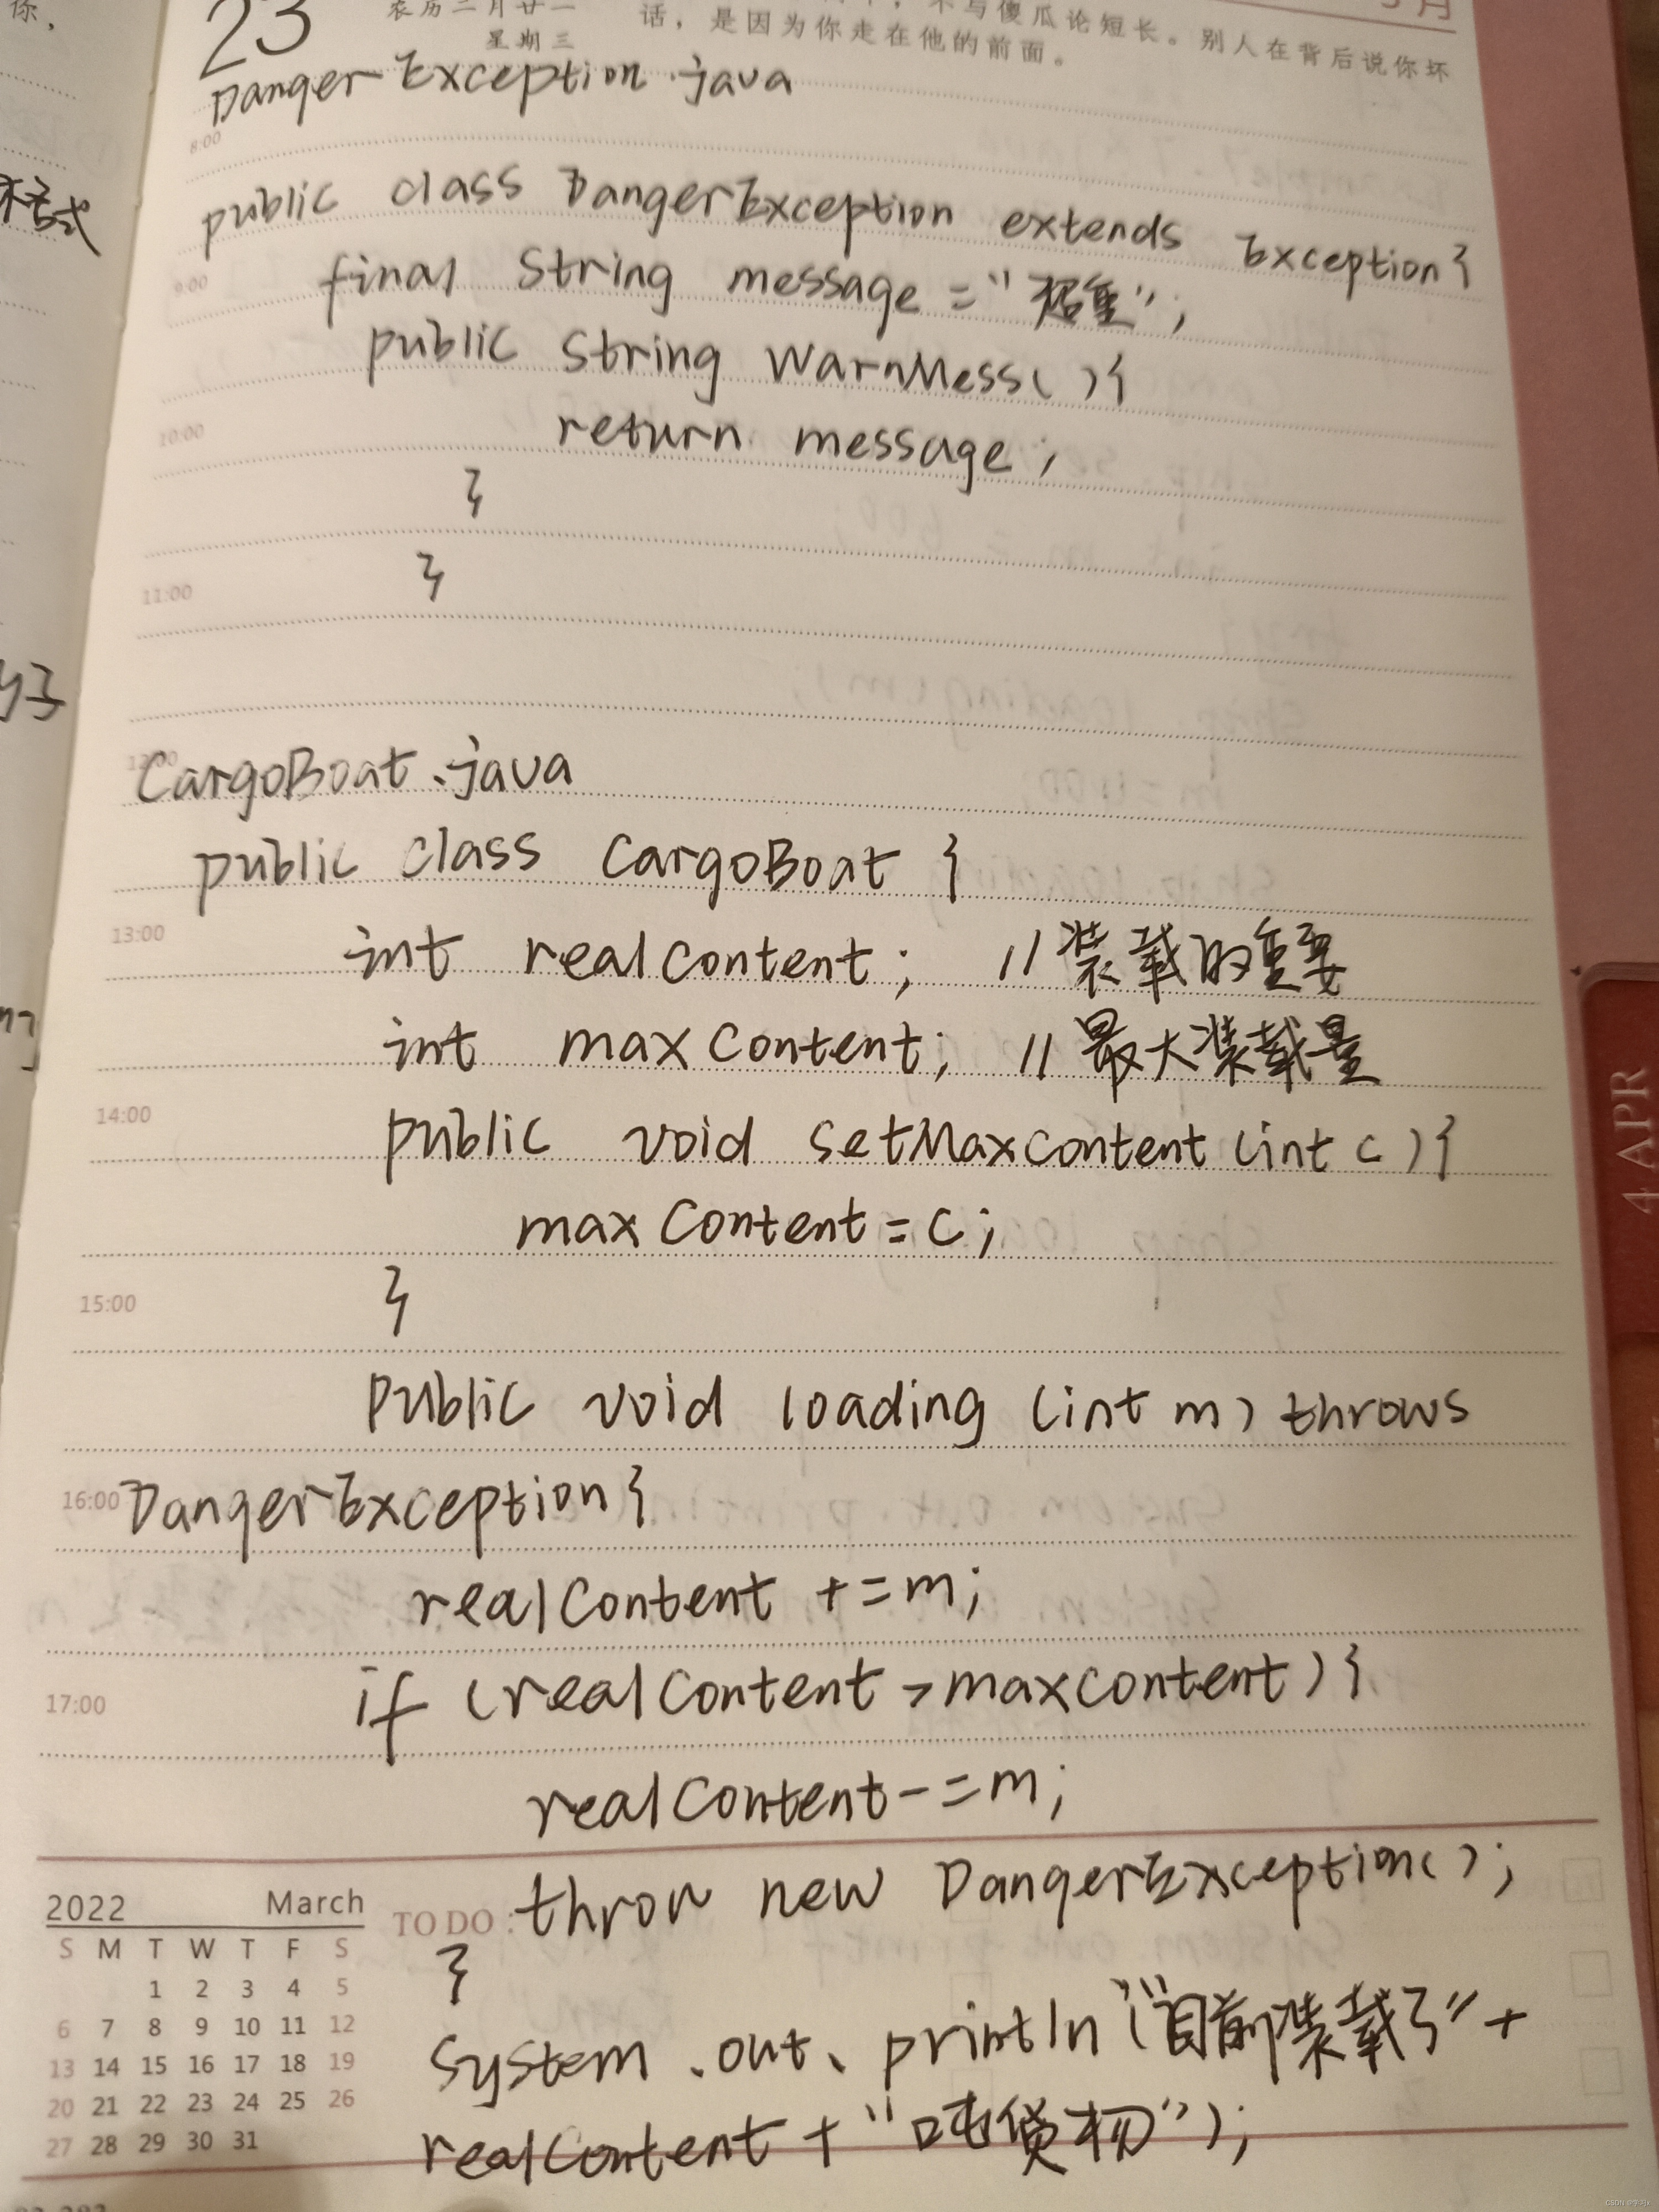 23
星期三
话，是因为你走在他的前面。
不与傻瓜论短长。别人在背后说你坏
DangerException.java
8:00
public class DangerException extends Exception{
9:00
final String message = "超重";
public String warnMess(){
10:00
return message;
}
11:00
}
CargoBoat.java
public class CargoBoat {
13:00
int realContent; //装载的重要
int maxContent; //最大装载量
14:00
public void setMaxContent (int c){
maxContent = c;
15:00
}
public void loading (int m) throws
16:00
DangerException{
realContent +=m;
17:00
if (realContent >maxContent){
realContent-=m;
throw new DangerException();
TO DO :
}
System.out.println("目前装载了"+
realContent + "吨货物");
2022 March
S M T W T F S
1 2 3 4 5
6 7 8 9 10 11 12
13 14 15 16 17 18 19
20 21 22 23 24 25 26
27 28 29 30 31
4 APR